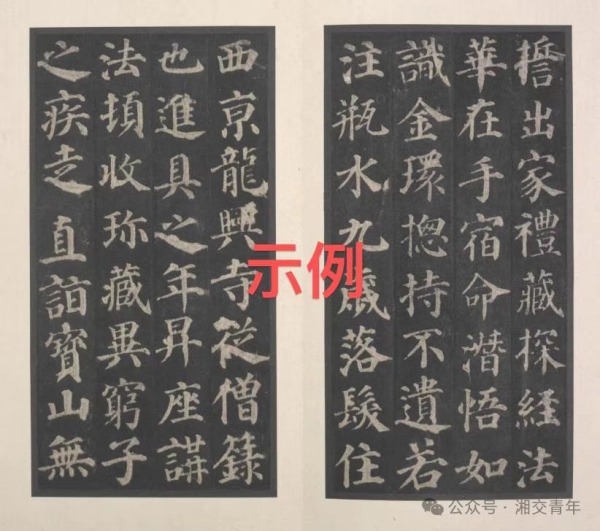 誓出家禮藏探經法
華在手宿命潛悟如
識金環摠持不遺若
注瓶水九歲落髮住
西亰龍興寺從僧籙
也進具之年昇座講
法頓收珎藏異窮子
之疾走直詣寶山無
示例
公众号·湘交青年